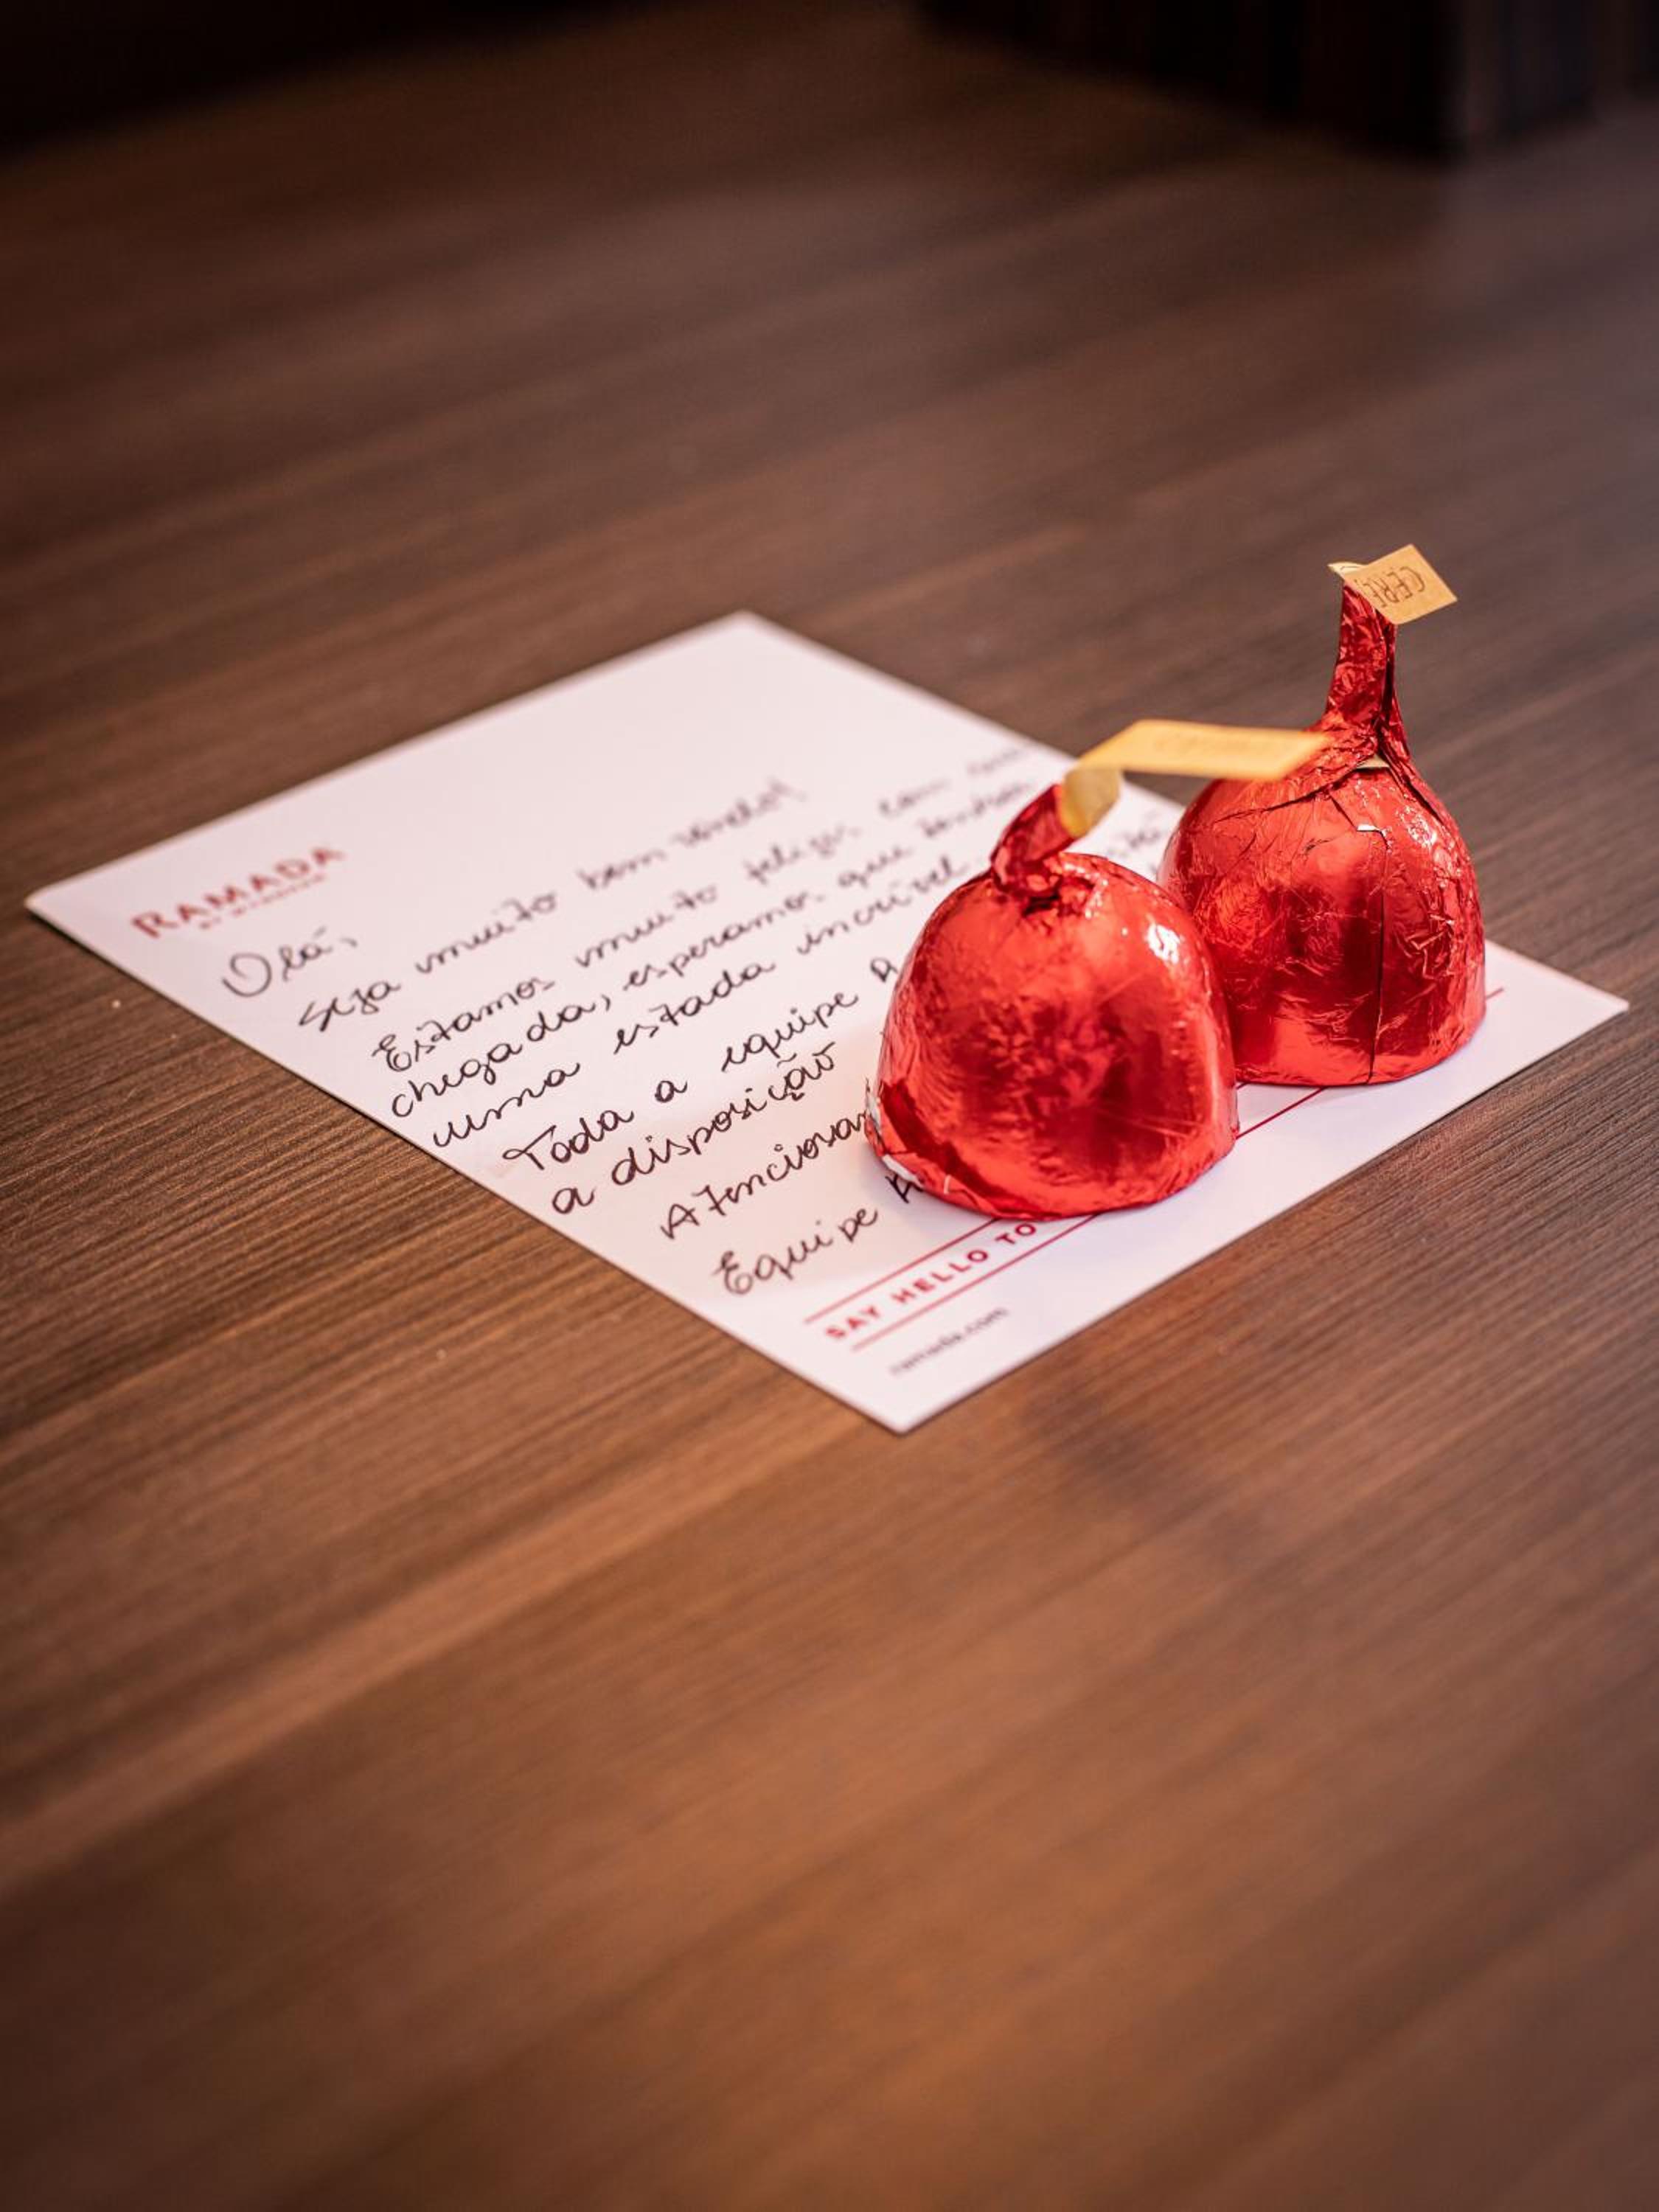 RAMADA
BY WYNDHAM
Olá,
Seja muito bem vindo!
Estamos muito felizes com sua
chegada, esperamos que tenha
uma estada incrível.
Toda a equipe
a disposição
Atenciosa
Equipe
SAY HELLO TO
ramada.com
CERE